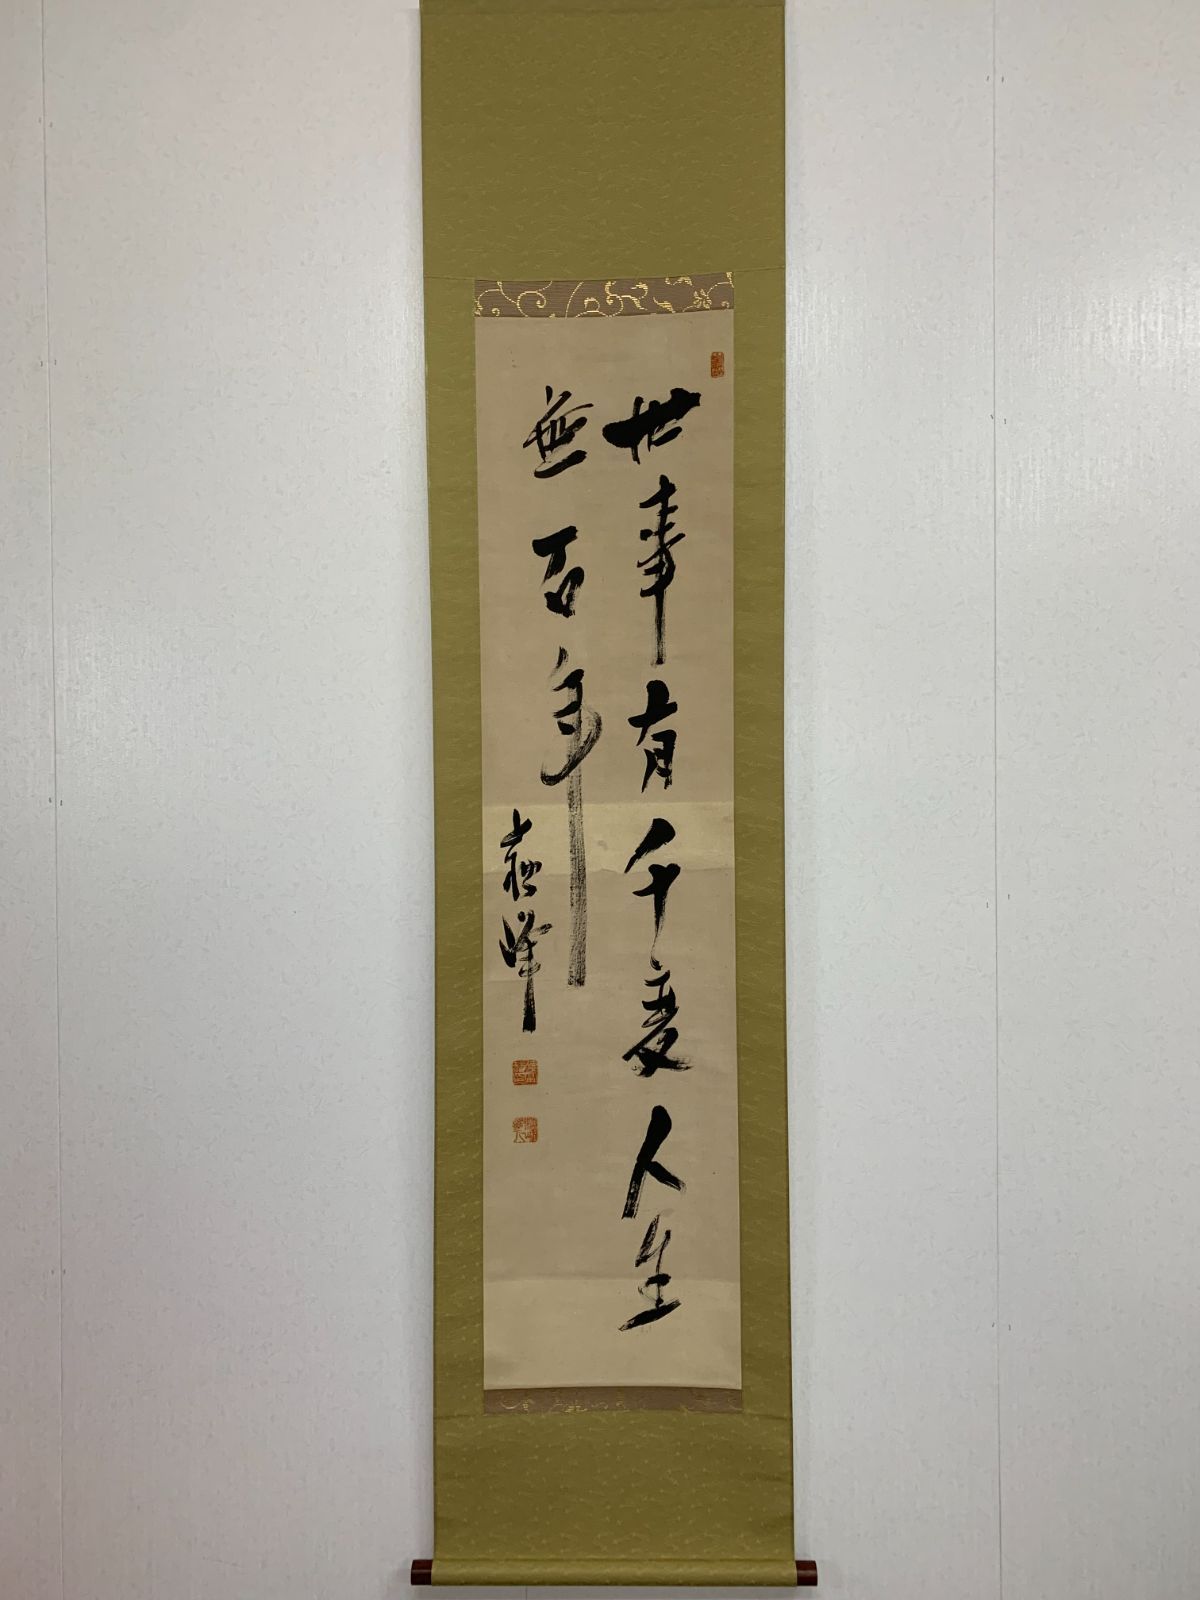 世事有千変人生
無百年
蘇峰